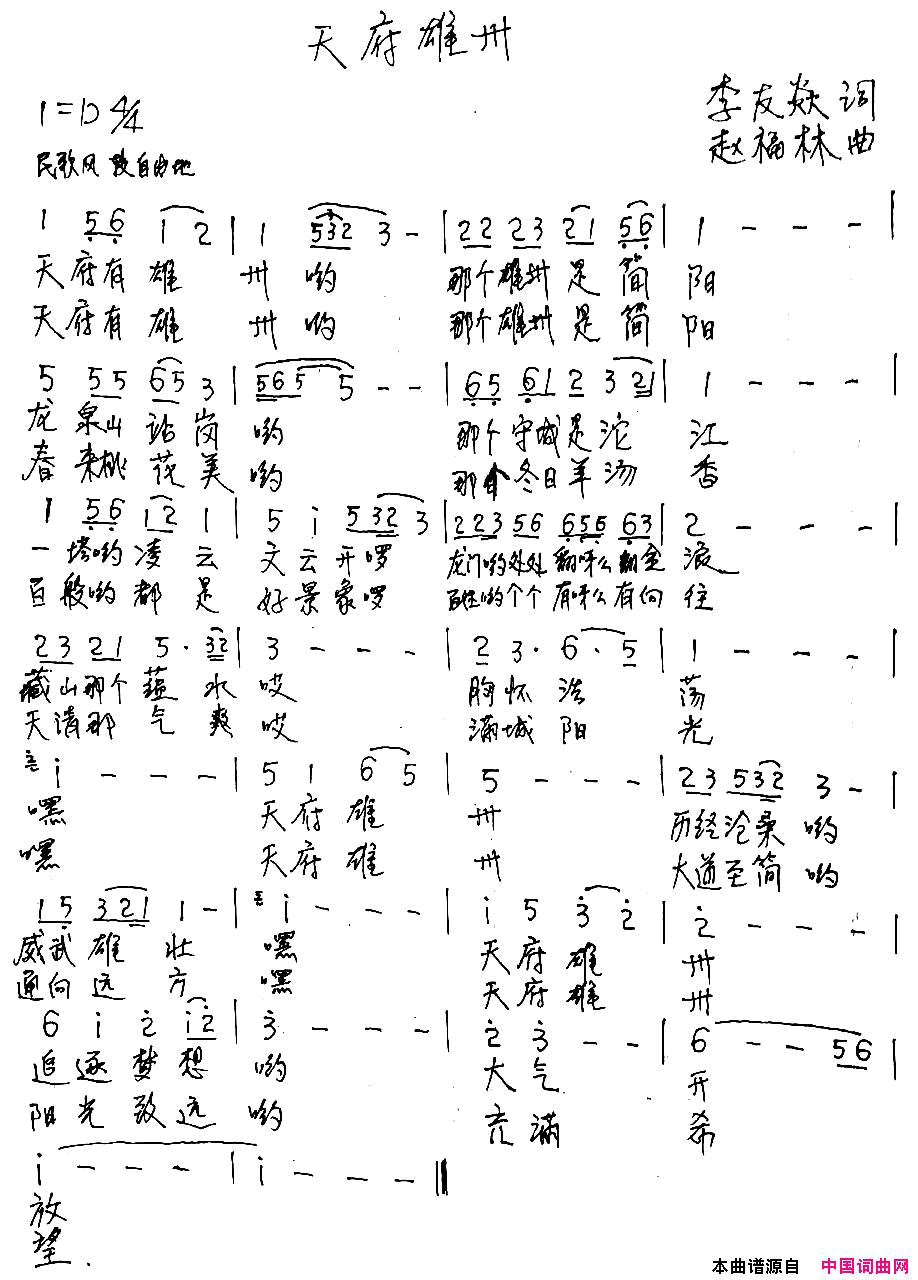 天府雄州
李友焱词
1=D 4/4
赵福林曲
民歌风 较自由地
1 56 12 | 1 532 3 - | 22 23 21 56 | 1 - - - |
天府有雄 州哟 那个雄州是简阳
天府有雄 州哟 那个雄州是简阳
5 55 65 3 | 565 5 - - | 65 61 2 321 | 1 - - - |
龙泉山站岗 哟 那个守城是沱 江
春来桃花美 哟 那个冬日羊汤 香
1 56 12 1 | 5 i 532 3 | 223 56 655 63 | 2 - - - |
一塔哟凌云 文云开啰 龙门哟处处翻呀么翻金浪
百般哟都是 好景象啰 百姓哟个个有呀么有向往
23 21 5· 32 | 3 - - - | 2 3· 6· 5 | 1 - - - |
藏山那个蕴水 哎 胸怀浩 荡
天清那气爽 哎 满城阳 光
i - - - | 5 1 6 5 | 5 - - - | 23 532 3 - |
嘿 天府雄 州 历经沧桑哟
嘿 天府雄 州 大道至简哟
15 321 1 - | i - - - | i 5 3 2 | 2 - - - |
威武雄壮 嘿 天府雄 州
通向远方 嘿 天府雄 州
6 i 2 i2 | 3 - - - | 2 3 - - | 6 - - 56 |
追逐梦想 哟 大气 开
阳光致远 哟 充满 希
i - - - | i - - - ‖
放
望.
本曲谱源自 中国词曲网